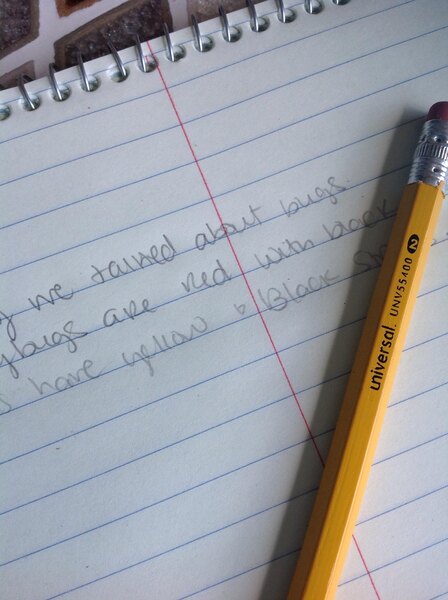 we talked about bugs.
ybugs are red with black
s have yellow & Black
universal. UNV55400 2